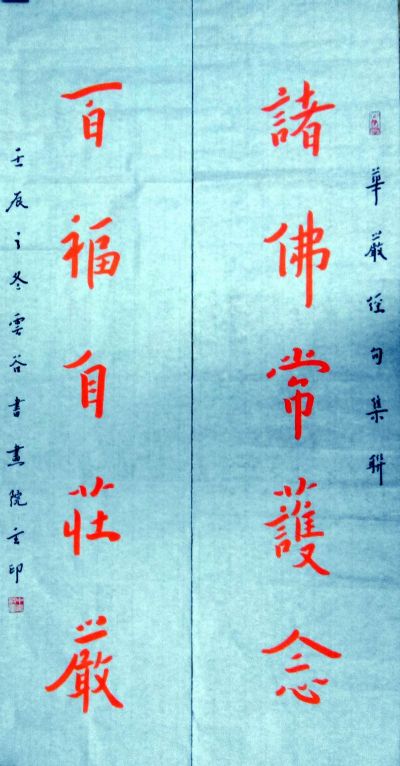 華嚴經句集聯
諸佛常護念
百福自莊嚴
壬辰之冬雲谷書畫院主印